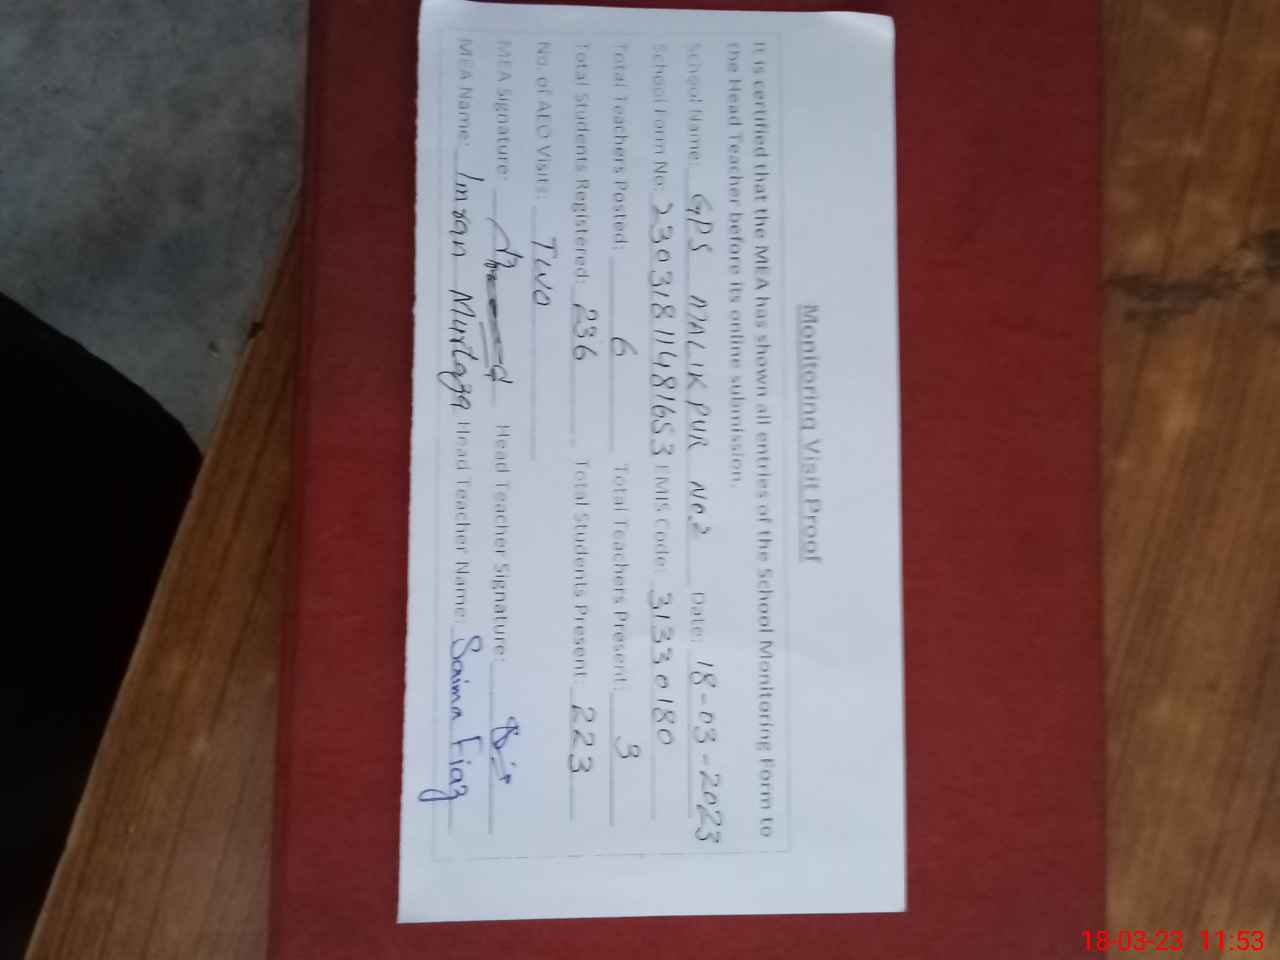 Monitoring Visit Proof
It is certified that the MEA has shown all entries of the School Monitoring Form to
the Head Teacher before its online submission.
School Name: GPS MALIKPUR NO2 Date: 18-03-2023
School Form No: 230318114816S3 EMIS Code: 31330180
Total Teachers Posted: 6 Total Teachers Present: 3
Total Students Registered: 236 Total Students Present: 223
No. of AEO Visits: TWO
MEA Signature: Head Teacher Signature:
MEA Name: Imran Murtaza Head Teacher Name: Saima Fiaz
18-03-23 11:53